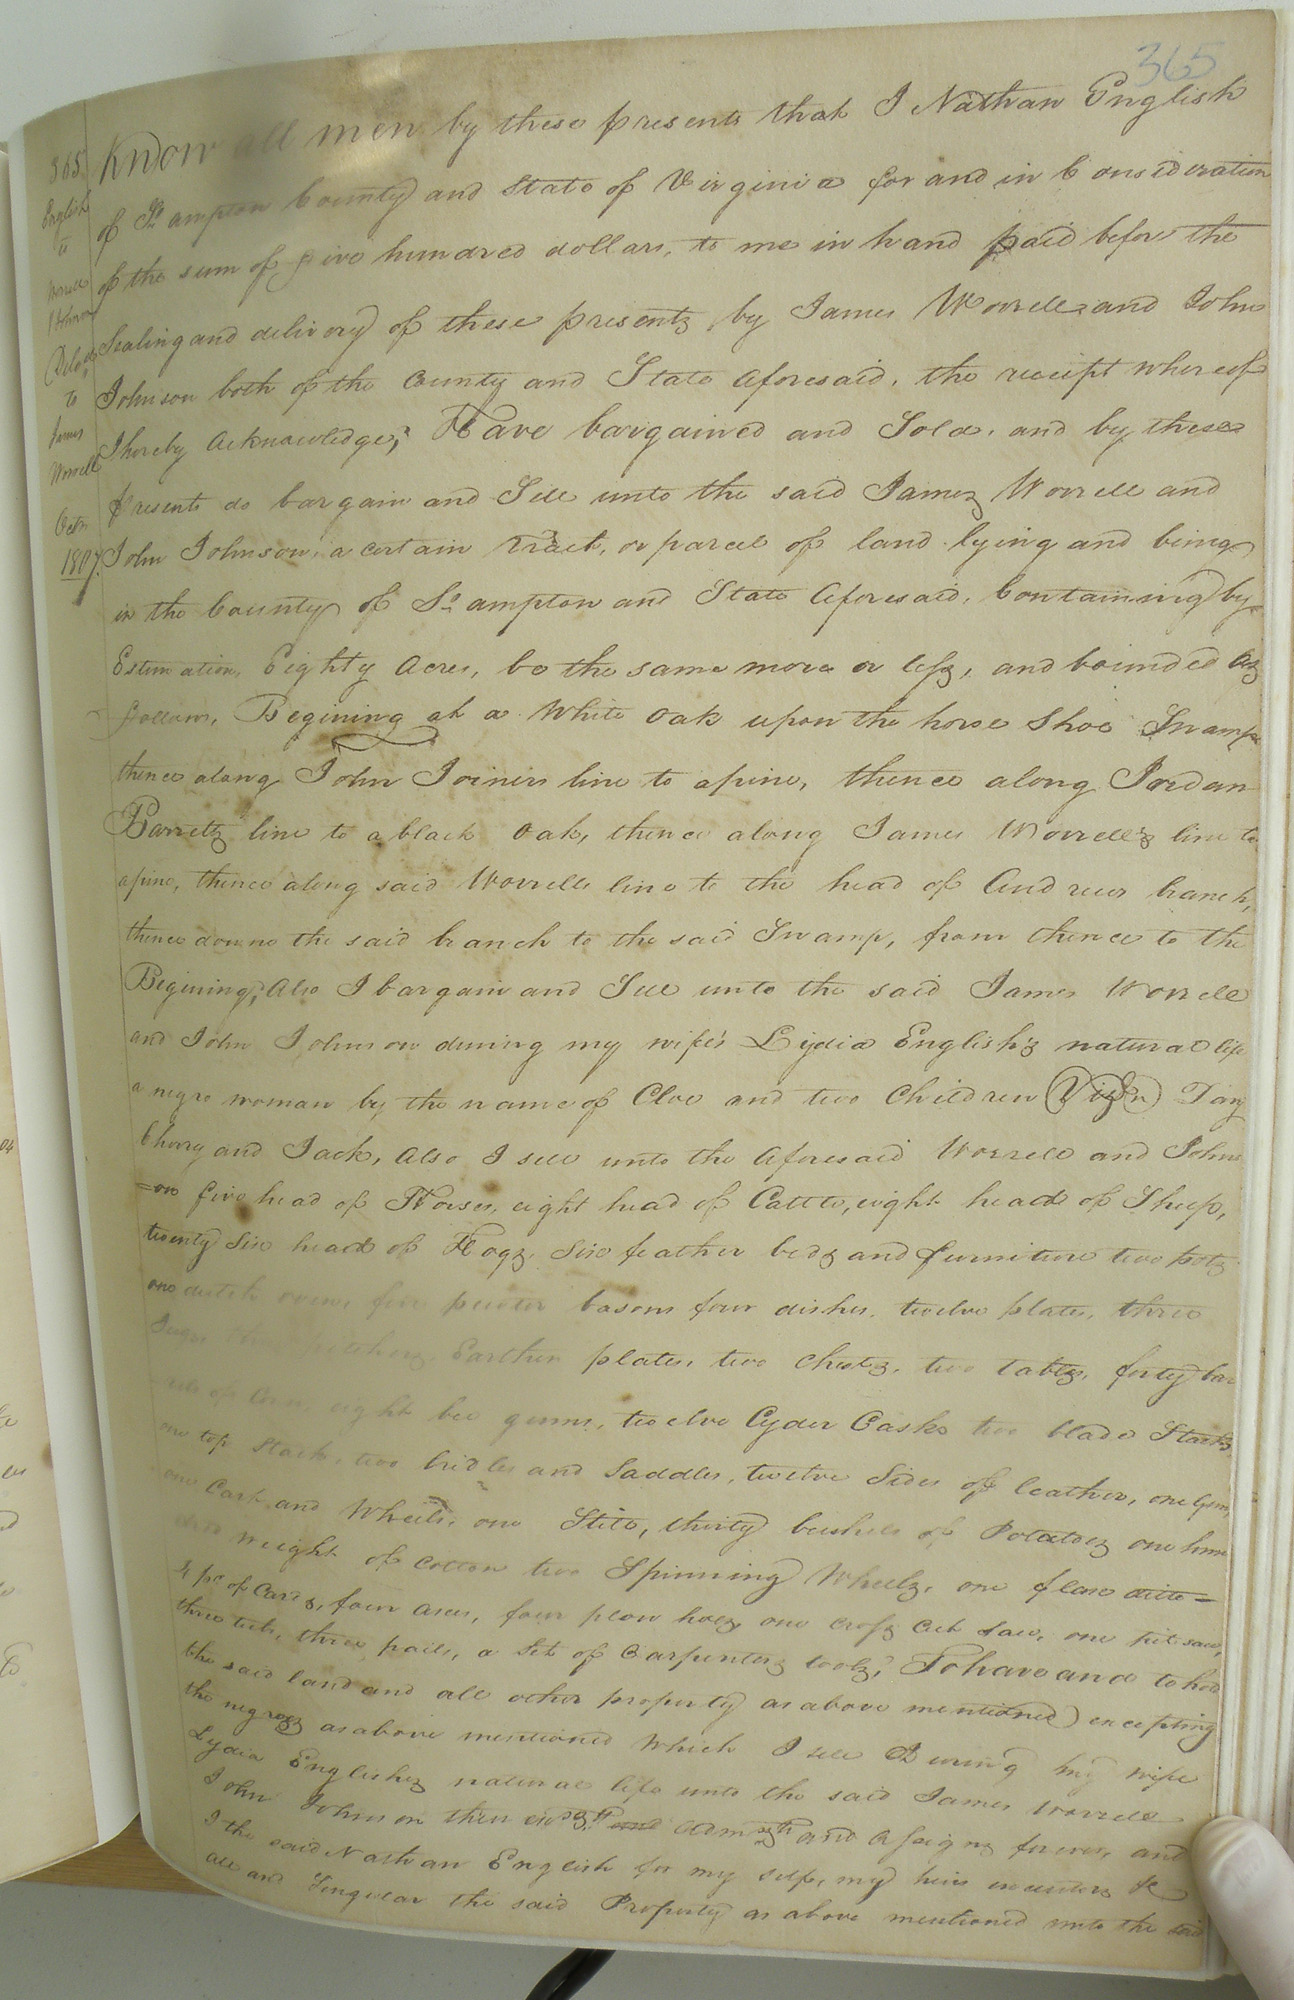 365
365
English
to
Worrell
& Johnson
Deld.
to
James
Worrell
Octr.
1807.
Know all men by these presents that I Nathan English
of So. ampton County and State of Virginia for and in Consideration
of the sum of five hundred dollars, to me in hand paid before the
Sealing and delivery of these presents by James Worrell and John
Johnson both of the County and State aforesaid, the receipt whereof
I hereby acknowledge, Have bargained and Sold, and by these
presents do bargain and Sell unto the said James Worrell and
John Johnson, a certain tract, or parcel of land lying and being
in the County of So. ampton and State aforesaid, Containing by
Estimation, Eighty Acres, be the same more or less, and bounded as
follows, Begining at a White Oak upon the horse Shoe Swamp
thence along John Joiners line to a pine, thence along Jordan
Barretts line to a black Oak, thence along James Worrell's line to
a pine, thence along said Worrells line to the head of Andrews branch,
thence downe the said branch to the said Swamp, from thence to the
Begining; Also I bargain and Sell unto the said James Worrell
and John Johnson during my wife's Lydia English's natural life
a negro woman by the name of Cloe and two Children
Cherry and Jack, Also I sell unto the aforesaid Worrell and Johns
=on five head of Horses, eight head of Cattle, eight head of Sheep,
twenty Six head of Hogs, Six feather beds and furniture two pots
one dutch oven, five pewter basons four dishes, twelve plates, three
Earthen plates, two Chests, two tables, forty bar
rels of Corn, eight bee gums, twelve Cyder Casks two blade Stacks,
one top Stack, two bridles and Saddles, twelve Sides of leather, one Gun,
one Cart and Wheels, one Still, thirty bushels of Potatoes one hun
dred weight of Cotton two Spinning Wheels, one flax ditto =
4 pr of Cards, four axes, four plow hoes, one cross cut Saw, one pit saw,
three tubs, three pails, a Set of Carpenters tools; To have and to hold
the said land and all other property as above mentioned excepting
the negroes as above mentioned Which I sell During my wife
Lydia Englishes natural life unto the said James Worrell
John Johnson their and and assigns forever, and
I the said Nathan English for my self, my heirs executors &c
all and Singular the said Property as above mentioned unto the said